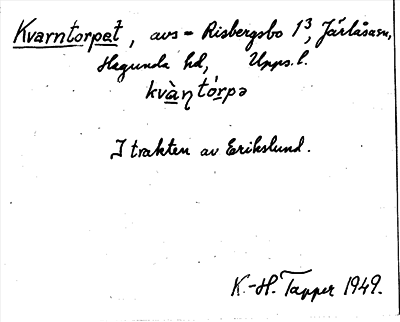 Kvarntorpet, avs = Risbergsbo 1³, Järlåsa sn,
Hagunda hd, Upps. l.
kvàηtórpə
I trakten av Erikslund.
K.-H. Tapper 1949.